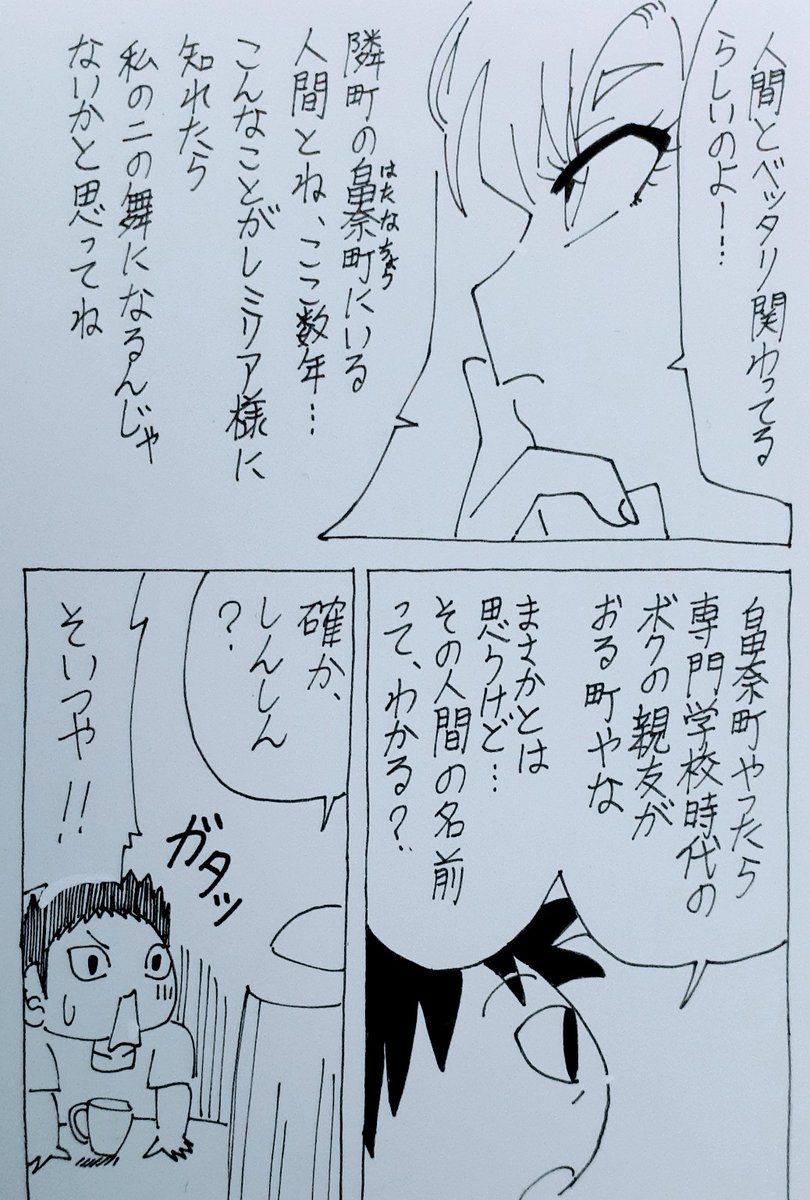 人間とベッタリ関わってる
らしいのよー…
隣町の畠奈町にいる
はたなちょう
人間とね、ここ数年…
こんなことがレミリア様に
知れたら
私の二の舞になるんじゃ
ないかと思ってね
畠奈町やったら
専門学校時代の
ボクの親友が
おる町やな
まさかとは
思うけど…
その人間の名前
って、わかる？
確か、
しんしん
？
ガタッ
そいつや!!